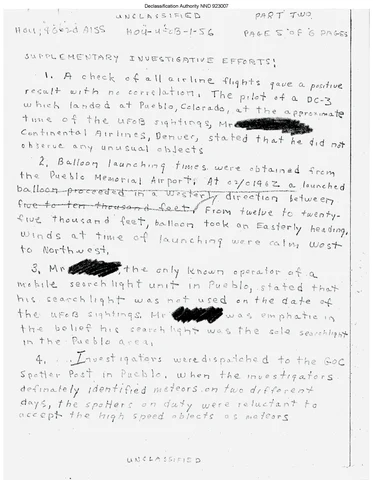 Declassification Authority NND 923007
UNCLASSIFIED
PART TWO
AISS
HOU-UFOB-1-56
PAGE 5 OF 6 PAGES
SUPPLEMENTARY INVESTIGATIVE EFFORTS:
1. A check of all airline flights gave a positive
result with no correlation. The pilot of a DC-3
which landed at Pueblo, Colorado, at the approximate
time of the UFOB sightings, Mr
Continental Airlines, Denver, stated that he did not
observe any unusual objects
2. Balloon launching times were obtained from
the Pueblo Memorial Airport. At a launched
balloon proceeded in a Westerly direction between
five to ten thousand feet. From twelve to twenty-
five thousand feet, balloon took an Easterly heading.
Winds at time of launching were calm, West
to Northwest.
3. Mr , the only known operator of a
mobile searchlight unit in Pueblo, stated that
his searchlight was not used on the date of
the UFOB sightings. Mr was emphatic in
the belief his searchlight was the sole searchlight
in the Pueblo area.
4. Investigators were dispatched to the GOC
Spotter Post in Pueblo. When the investigators
definately identified meteors on two different
days, the spotters on duty were reluctant to
accept the high speed objects as meteors
UNCLASSIFIED